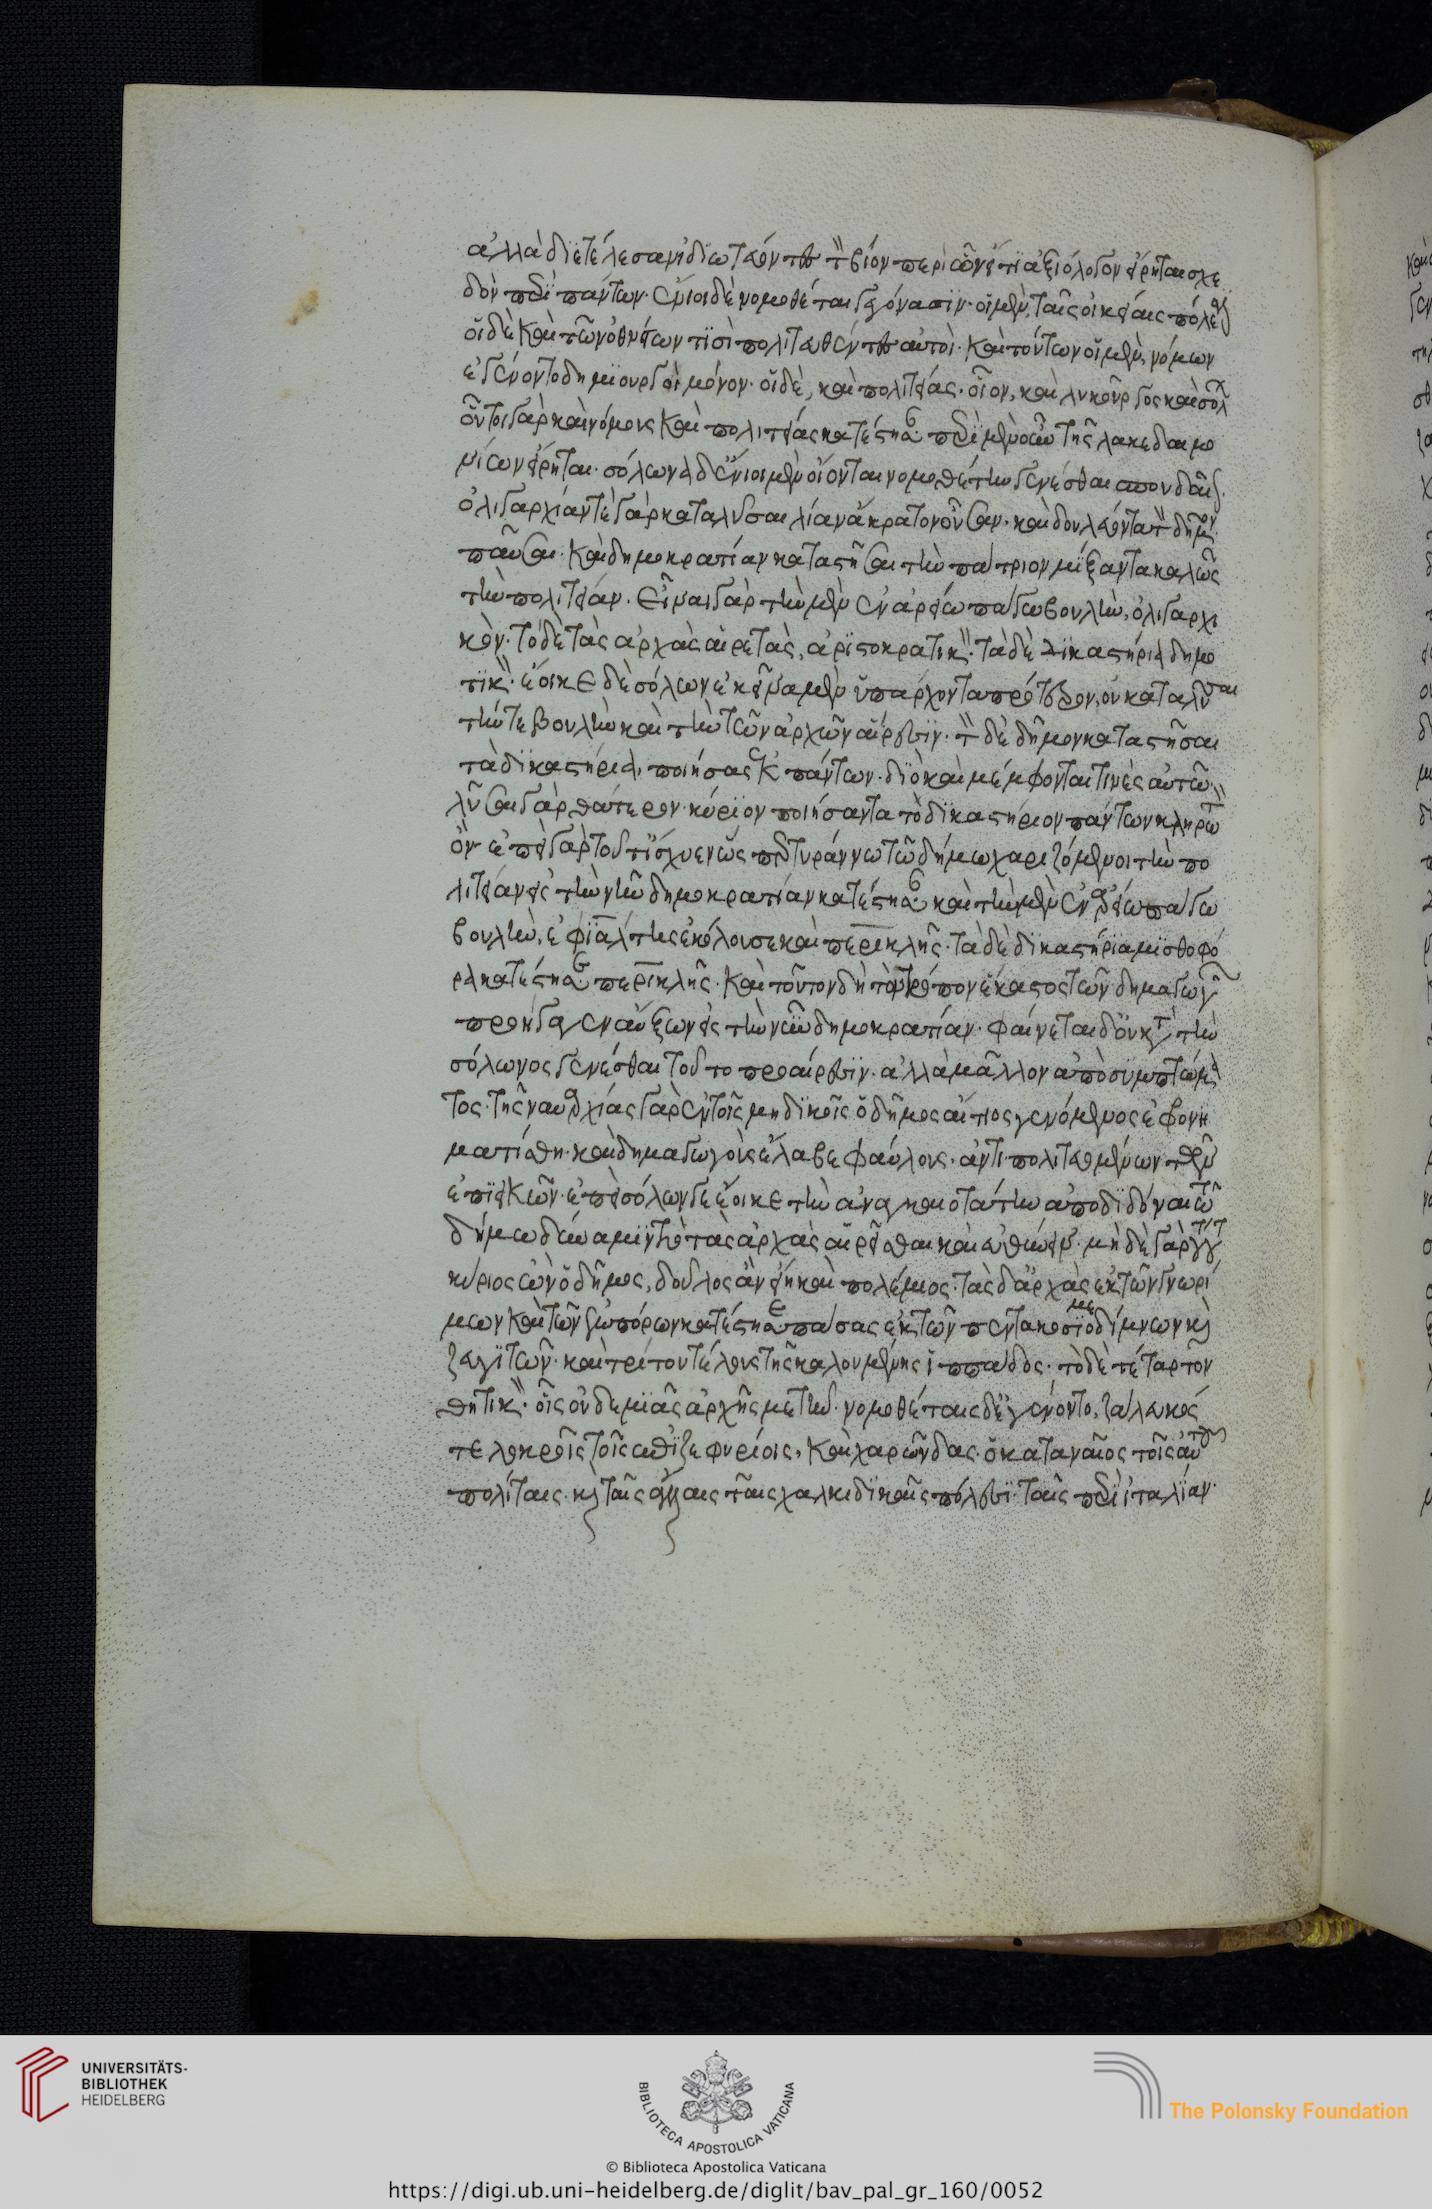 ἀλλὰ διετέλεσαν ἰδιωτεύοντες τὸν βίον περὶ ὧν εἴ τι ἀξιόλογον εἴρηται σχε
δὸν περὶ πάντων· ἔνιοι δὲ νομοθέται γεγόνασιν· οἱ μὲν, ταῖς οἰκείαις πόλεσιν
οἱ δὲ καὶ τῶν ὀθνείων τισὶ πολιτευθέντες αὐτοί· καὶ τούτων οἱ μὲν, νόμων
ἐγένοντο δημιουργοὶ μόνον· οἱ δὲ, καὶ πολιτείας· οἷον, καὶ λυκοῦργος καὶ σόλων
οὗτοι γὰρ καὶ νόμους καὶ πολιτείας κατέστησαν περὶ μὲν οὖν τῆς λακεδαιμο
νίων εἴρηται· σόλωνα δ' ἔνιοι μὲν οἴονται νομοθέτην γενέσθαι σπουδαῖον·
ὀλιγαρχίαν τε γὰρ καταλῦσαι λίαν ἄκρατον οὖσαν· καὶ δουλεύοντα τὸν δῆμον
παῦσαι· καὶ δημοκρατίαν καταστῆσαι τὴν πάτριον μίξαντα καλῶς
τὴν πολιτείαν· εἶναι γὰρ τὴν μὲν ἐν ἀρείω πάγω βουλὴν, ὀλιγαρχι
κόν· τὸ δὲ τὰς ἀρχὰς αἱρετὰς, ἀριστοκρατικόν· τὰ δὲ δικαστήρια δημο
τικόν· ἔοικε δὲ σόλων ἐκεῖνα μὲν ὑπάρχοντα πρότερον, οὐ καταλῦσαι
τήν τε βουλὴν καὶ τὴν τῶν ἀρχῶν αἵρεσιν· τὸν δὲ δῆμον καταστῆσαι
τὰ δικαστήρια, ποιήσας ἐκ πάντων· διὸ καὶ μέμφονταί τινες αὐτῶ·
λῦσαι γὰρ θάτερον· κύριον ποιήσαντα τὸ δικαστήριον πάντων κληρωτὸν
ὄν· ἐπεὶ γὰρ τοῦτ' ἴσχυεν ὥσπερ τυράννω τῶ δήμω χαριζόμενοι τὴν πο
λιτείαν εἰς τὴν νῦν δημοκρατίαν κατέστησαν καὶ τὴν μὲν ἐν ἀρείω πάγω
βουλὴν, ἐφιάλτης ἐκόλουσε καὶ περικλῆς· τὰ δὲ δικαστήρια μισθοφό
ρα κατέστησε περικλῆς· καὶ τοῦτον δὴ τὸν τρόπον ἕκαστος τῶν δημαγωγῶν
προήγαγεν αὔξων εἰς τὴν νῦν δημοκρατίαν· φαίνεται δ' οὐ κατὰ τὴν
σόλωνος γενέσθαι τοῦτο προαίρεσιν· ἀλλὰ μᾶλλον ἀπὸ συμπτώμα
τος· τῆς ναυαρχίας γὰρ ἐν τοῖς μηδικοῖς ὁ δῆμος αἴτιος γενόμενος ἐφρονη
ματίσθη· καὶ δημαγωγοὺς ἔλαβε φαύλους· ἀντιπολιτευομένων τῶν
ἐπιεικῶν· ἐπεὶ σόλων γε ἔοικε τὴν ἀναγκαιοτάτην ἀποδιδόναι τῶ
δήμω δύναμιν τὸ τὰς ἀρχὰς αἱρεῖσθαι καὶ εὐθύνειν· μηδὲ γὰρ τούτου
κύριος ὢν ὁ δῆμος, δοῦλος ἂν εἴη καὶ πολέμιος· τὰς δ' ἀρχὰς ἐκ τῶν γνωρί
μων καὶ τῶν εὐπόρων κατέστησε πάσας ἐκ τῶν πεντακοσιομεδίμνων καὶ
ζευγιτῶν· καὶ τρίτου τέλους τῆς καλουμένης ἱππάδος· τὸ δὲ τέταρτον
θητικόν· οἷς οὐδεμιᾶς ἀρχῆς μετῆν· νομοθέται δ' ἐγένοντο, ζάλευκός
τε λοκροῖς τοῖς ἐπιζεφυρίοις, καὶ χαρώνδας ὁ καταναῖος τοῖς αὑτοῦ
πολίταις· καὶ ταῖς ἄλλαις ταῖς χαλκιδικαῖς πόλεσι· ταῖς περὶ ἰταλίαν·
UNIVERSITÄTS-
BIBLIOTHEK
HEIDELBERG
BIBLIOTECA APOSTOLICA VATICANA
The Polonsky Foundation
© Biblioteca Apostolica Vaticana
https://digi.ub.uni-heidelberg.de/diglit/bav_pal_gr_160/0052